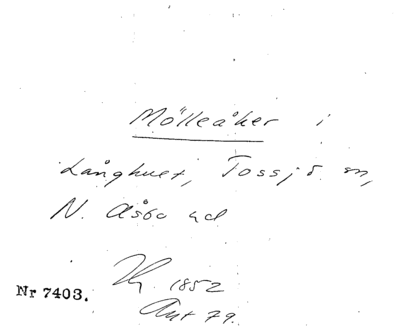 Mölleåker i
Långhult, Tossjö sn,
N. Åsbo hd
Nr 7403.
1852
Ant 79.